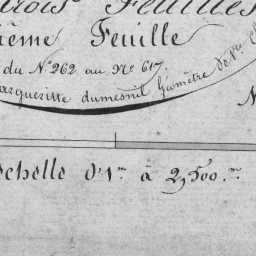 trois Feuilles
ième Feuille
du N° 262 au N° 617.
argueritte dumesnil Géomètre de 1ère
N
Echelle d'1.m à 2,500.m